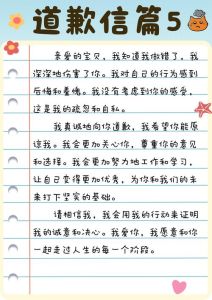 道歉信篇5
亲爱的宝贝，我知道我做错了，我
深深地伤害了你。我对自己的行为感到
后悔和羞愧。我没有考虑到你的感受，
这是我的疏忽和自私。
我真诚地向你道歉，我希望你能原
谅我。我会更加关心你，尊重你的意见
和选择。我会更加努力地工作和学习，
让自己变得更加优秀，为你和我们的未
来打下坚实的基础。
请相信我，我会用我的行动来证明
我的诚意和决心。我爱你，我愿意和你
一起走过人生的每一个阶段。